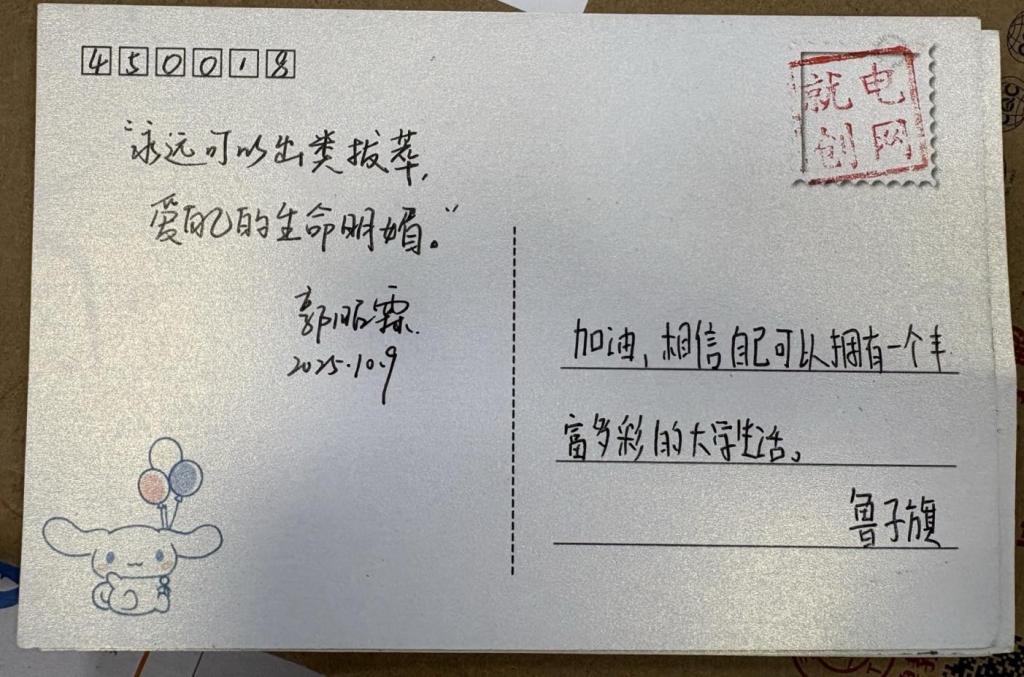 450018
"永远可以出类拔萃,
爱自己的生命明媚。"
郭昭霖
2025.10.9
就电
创网
加油,相信自己可以拥有一个丰
富多彩的大学生活。
鲁子旗